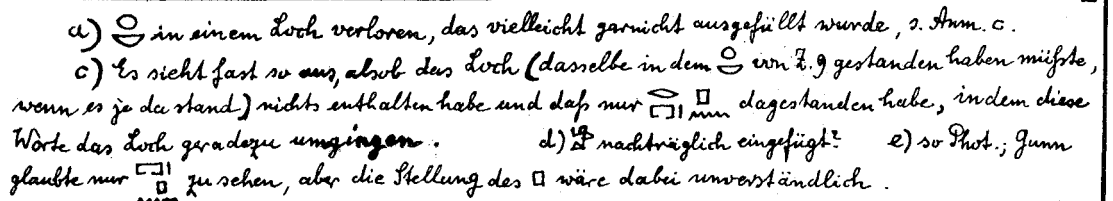 a) 𓐍𓎟 in einem Loch verloren, das vielleicht garnicht ausgefüllt wurde, s. Anm. c.
c) Es sieht fast so aus, alsob das Loch (dasselbe in dem von Z. 9 gestanden haben müßte,
wenn es je da stand) nichts enthalten habe und daß nur 𓂋𓉐𓏤 𓊪𓈖 dagestanden habe, indem diese
Worte das Loch geradezu umgingen. d) nachträglich eingefügt? e) so Phot.; Gunn
glaubte nur 𓉐𓏤𓊪𓈖 zu sehen, aber die Stellung des 𓊪 wäre dabei unverständlich.